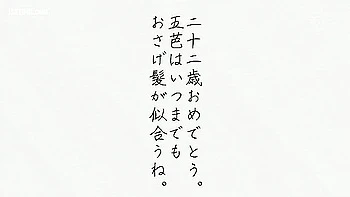 二十二歳おめでとう。
五芭はいつまでも
おさげ髪が似合うね。